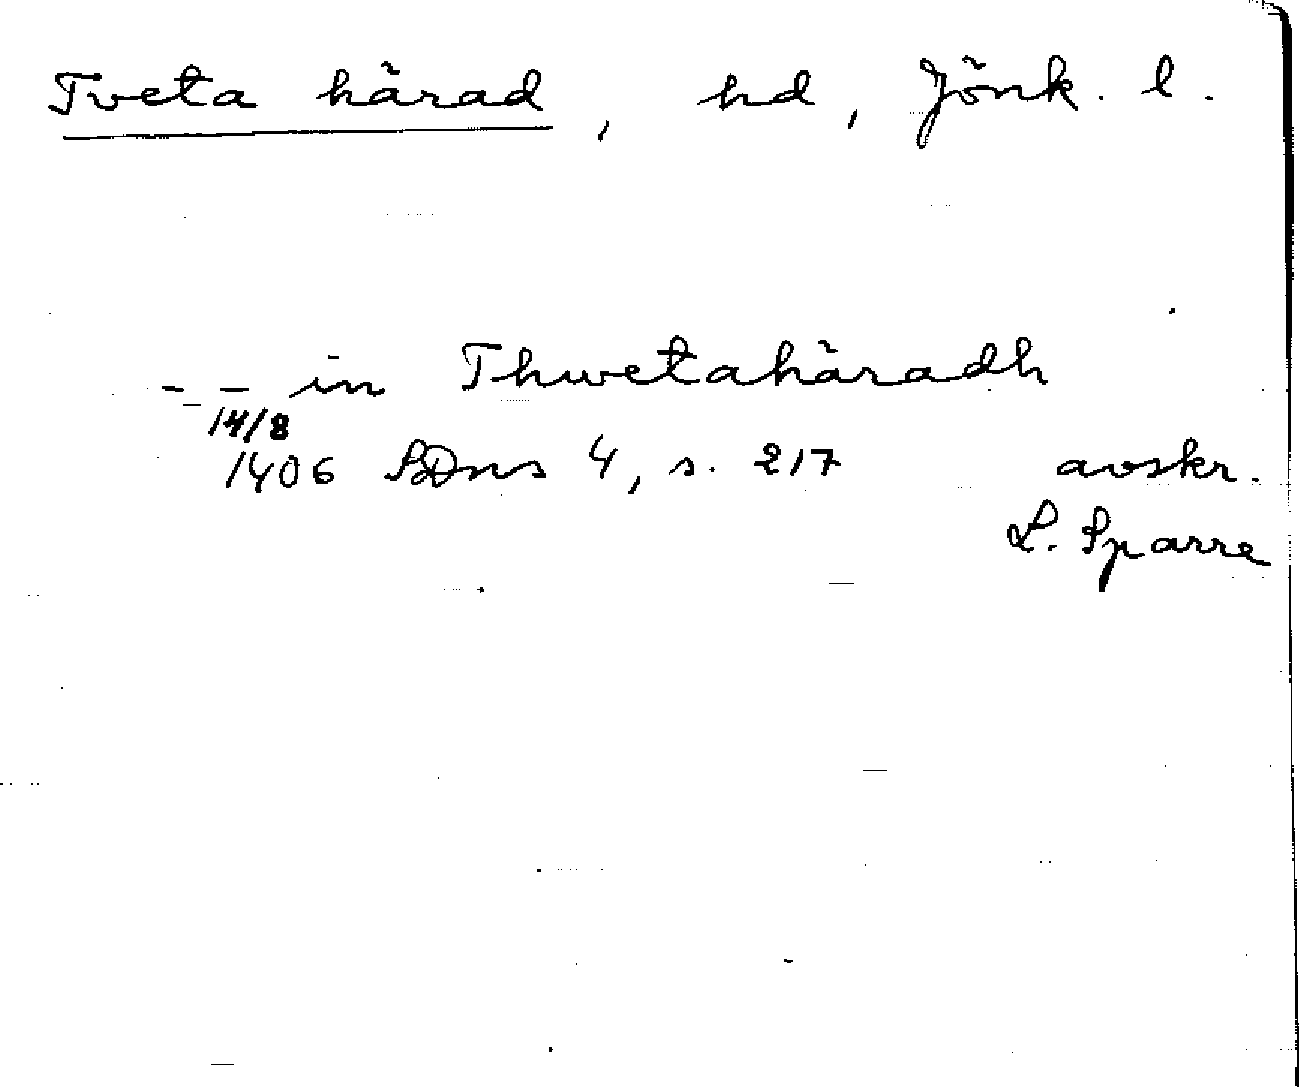 Tveta härad, hd, Jönk. l.
- - in Thwetahäradh
14/8
1406 SDns 4, s. 217 avskr.
L. Sparre